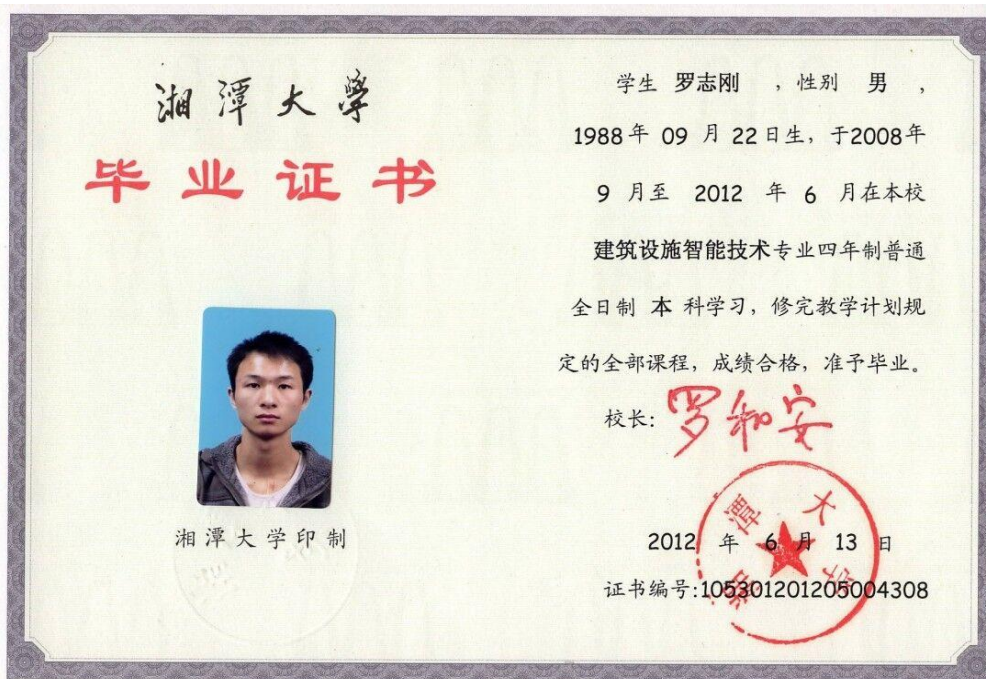 湘潭大学
毕业证书
湘潭大学印制
学生 罗志刚 ，性别 男 ，
1988年 09 月 22日生，于2008年
9 月至 2012 年 6 月在本校
建筑设施智能技术专业四年制普通
全日制 本 科学习，修完教学计划规
定的全部课程，成绩合格，准予毕业。
校长：罗和安
湘潭大学
2012 年 6 月 13 日
证书编号:105301201205004308